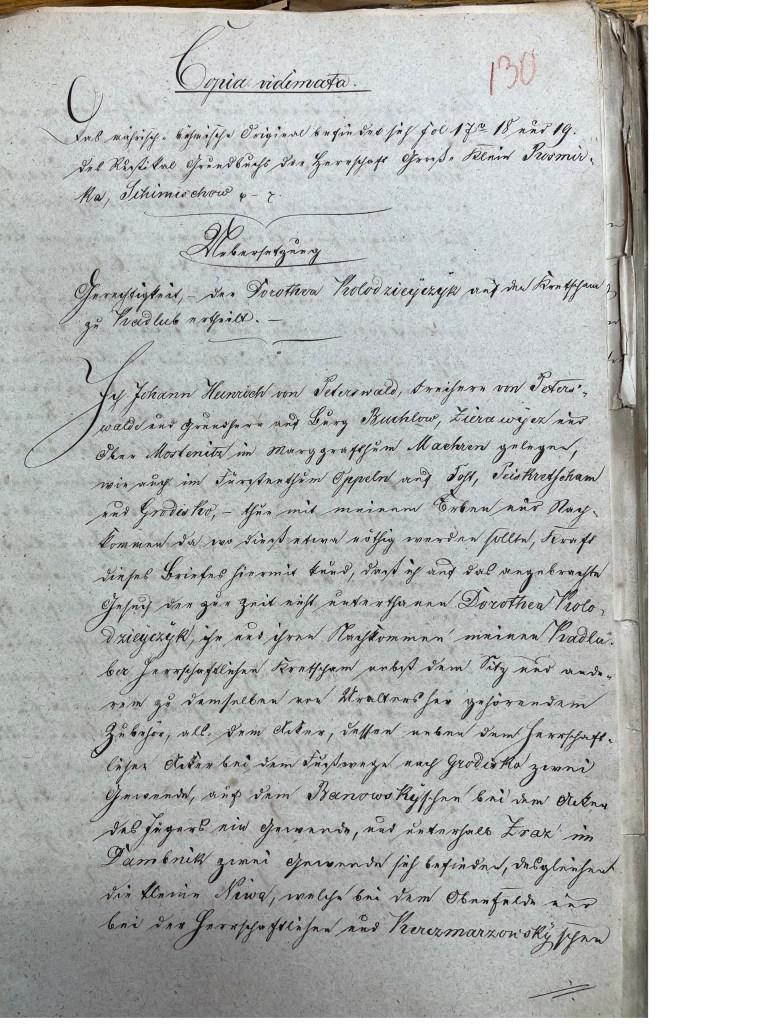 Copia vidimata.
130
Das mährisch-böhmische Original befindet sich fol 17. 18 und 19.
des Rustikal Grundbuchs der Herrschaft Groß- Klein Pusmir-
ka, Schimischow p - p.
Uebersetzung
Gerechtigkeit, – der Dorothea Kolodzieyczyk auf den Kretscham
zu Kadlub ertheilt. –
Ich Johann Heinrich von Peterswald, Freiherr von Peters-
wald und Grundherr auf Burg Buchlow, Zierawycz und
Ober Mostenitz im Marggrafthum Maehren gelegen,
wie auch im Fürstenthum Oppeln auf Tost, Peiskretscham
und Grodisko, – thue mit meinem Erben und Nach-
kommen da wo dieß etwa nöthig werden sollte, Kraft
dieses Briefes hiermit kund, daß ich auf das angebrachte
Gesuch der zur Zeit nicht unterthanen Dorothea Kolo-
dzieyczyk, ihr und ihren Nachkommen meinen Kadlu-
ber Herrschaftlichen Kretscham nebst dem Sitz und ande-
rem zu demselben von Uralters her gehörendem
Zubehör, als: dem Acker, dessen neben dem Herrschaft-
lichen Acker bei dem Fußwege nach Grodisko zwei
Gewende, auf dem Banowsky'schen bei dem Acker
des Jägers ein Gewende, und unterhalb Zraz im
Dambnik zwei Gewende sich befinden, desgleichen
die kleine Niwa, welche bei dem Oberfelde und
bei der Herrschaftlichen und Kerczmarzowsky'schen